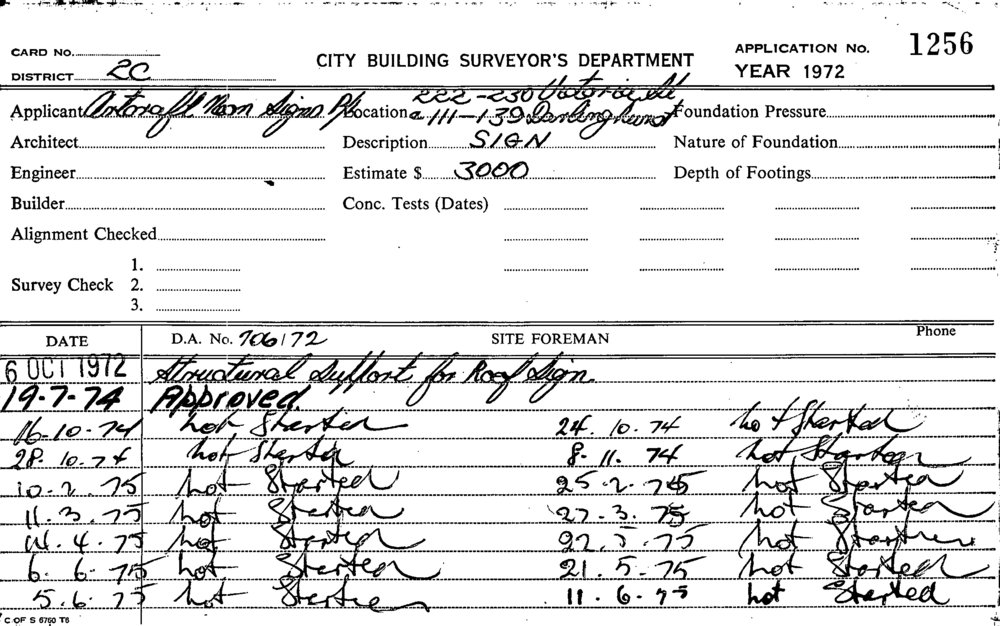 CARD No. APPLICATION No. 1256
DISTRICT 2C CITY BUILDING SURVEYOR'S DEPARTMENT YEAR 1972
222-230 Victoria St
Applicant Artcraft Neon Signs P/L Location & 111-139 Darlinghurst Foundation Pressure
Architect Description SIGN Nature of Foundation
Engineer Estimate $ 3000 Depth of Footings
Builder Conc. Tests (Dates)
Alignment Checked
1.
Survey Check 2.
3.
DATE D.A. No. 706/72 SITE FOREMAN Phone
6 OCT 1972 Structural Support for Roof Sign.
19-7-74 Approved.
16-10-74 not Started 24.10.74 not Started
28.10.74 not Started 8.11.74 not Started
10.2.75 not Started 25.2.75 not Started
11.3.75 not Started 27.3.75 not Started
14.4.75 not Started 22.5.75 not Started
6.6.75 not Started 21.5.75 not Started
5.6.75 not Started 11.6.75 not Started
C OF S 6760 T6